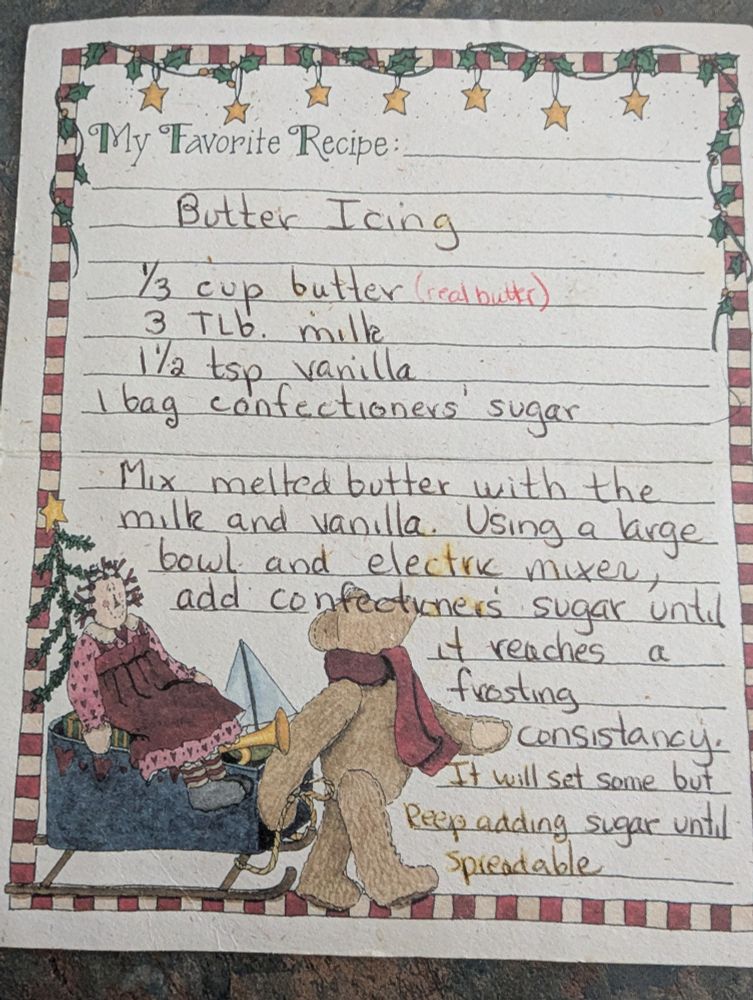 My Favorite Recipe:
Butter Icing
1/3 cup butter (real butter)
3 TLb. milk
1 1/2 tsp vanilla
1 bag confectioners' sugar
Mix melted butter with the
milk and vanilla. Using a large
bowl and electric mixer,
add confectioners' sugar until
it reaches a
frosting
consistancy.
It will set some but
keep adding sugar until
spreadable